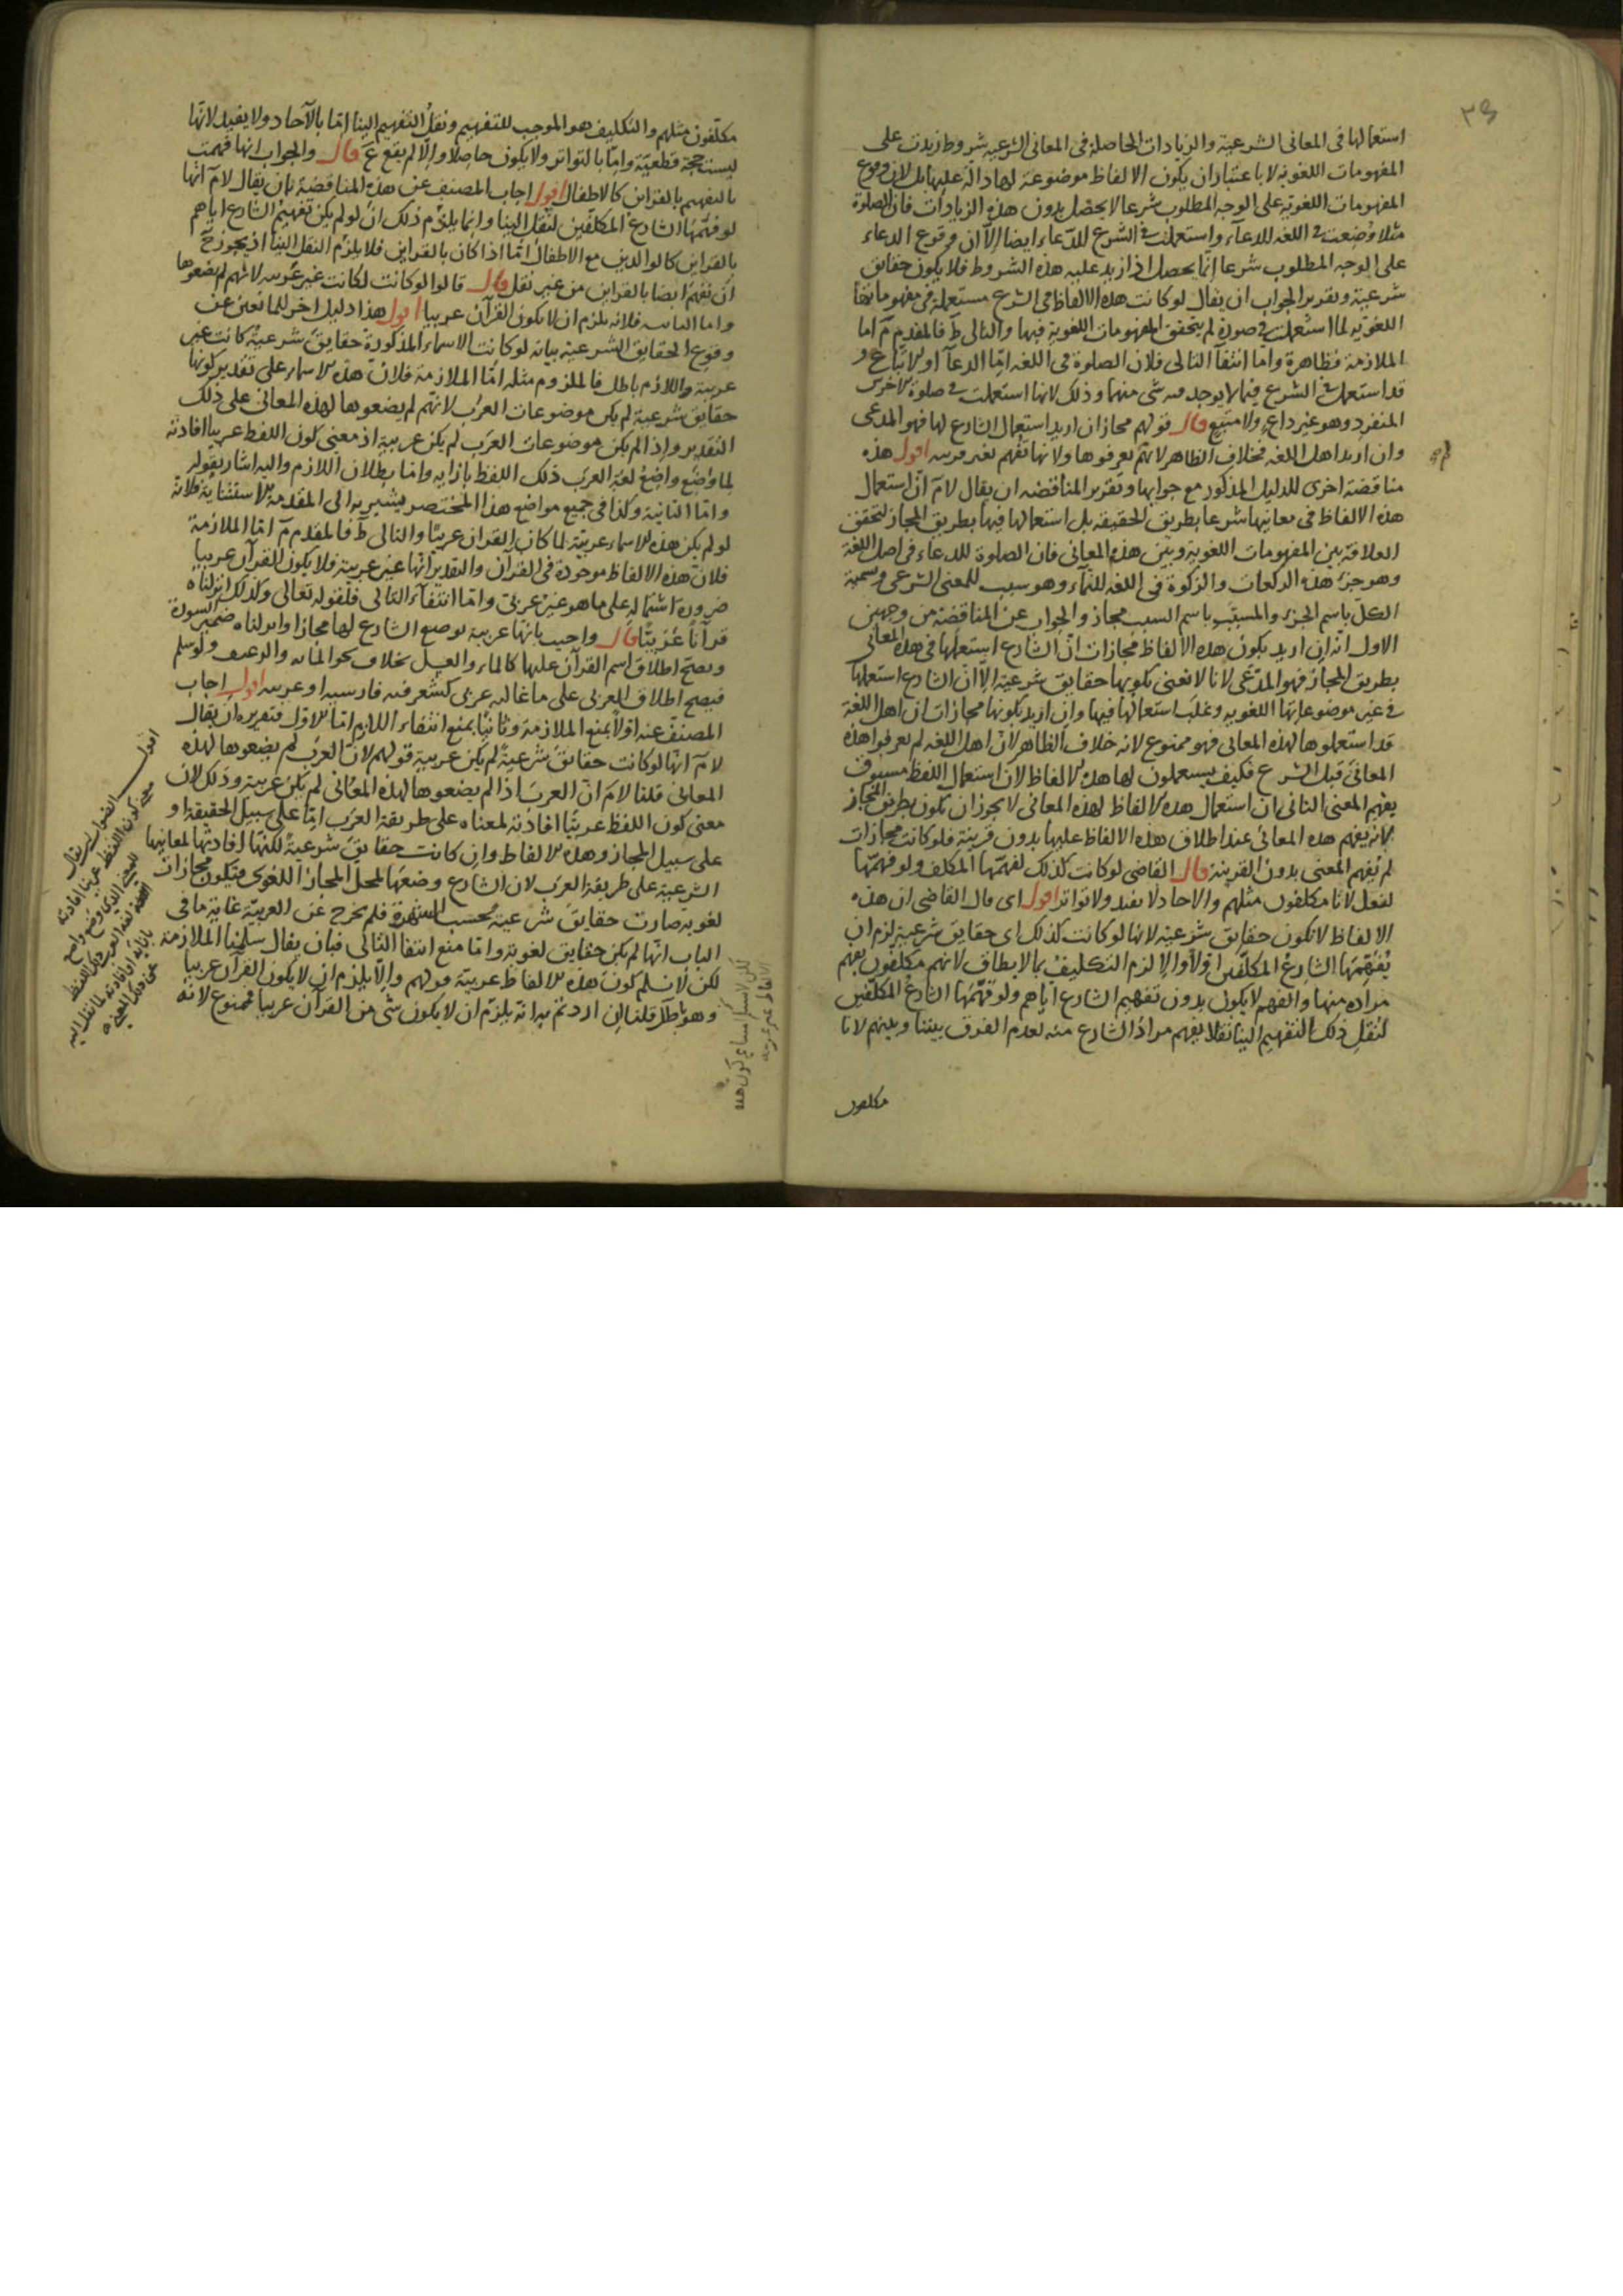 استعمالها فى المعانى الشرعية والزيادات الحاصلة فى المعانى الشرعية شروط زيدت على
المفهومات اللغوية لا باعتبار ان يكون الالفاظ موضوعة لها دالة عليها بل لان وقوع
المفهومات اللغوية على الوجه المطلوب شرعا لا يحصل بدون هذه الزيادات فان الصلوة
مثلا وضعت فى اللغه للدعآء واستعملت فى الشرع للدعاء ايضا الا ان وقوع الدعاء
على الوجه المطلوب شرعا انما يحصل اذا زيد عليه هذه الشروط فلا يكون حقايق
شرعية وتقرير الجواب ان يقال لو كانت هذه الالفاظ فى الشرع مستعملة فى مفهوماتها
اللغويه لما استعملت فى صورة لم يتحقق المفهومات اللغوية فيها والتالى ط فالمقدم م اما
الملازمة فظاهرة واما انتفآ التالى فلان الصلوة فى اللغه اما الدعآ او الاتباع و
قد استعمل فى الشرع فيما لا يوجد فيه شى منهما وذلك لانها استعملت فى صلوة الاخرس
المنفرد وهو غير داع ولا متبع قال قولهم مجاز ان اريد استعمال الشارع لها فهو المدعى
وان اريد اهل اللغه فخلاف الظاهر لانهم لم يعرفوها ولانها تفهم بغير قرينه اقول هذه
مناقضة اخرى للدليل المذكور مع جوابها وتقرير المناقضه ان يقال لا م ان استعمال
هذه الالفاظ فى معانيها شرعا بطريق الحقيقه بل استعمالها فيها بطريق المجاز لتحقق
العلاقة بين المفهومات اللغوية وبين هذه المعانى فان الصلوة للدعاء فى اصل اللغة
وهو جزء هذه الركعات والزكوة فى اللغه للنمآء وهو سبب للمعنى الشرعى وتسمية
الكل باسم الجزء والمسبب باسم السبب مجاز والجواب عن المناقضة من وجهين
الاول انه ان اريد بكون هذه الالفاظ مجازات ان الشارع استعملها فى هذه المعانى
بطريق المجاز فهو المدعى لانا لا نعنى بكونها حقايق شرعية الا ان الشارع استعملها
فى غير موضوعاتها اللغويه وغلب استعمالها فيها وان اريد بكونها مجازات ان اهل اللغة
قد استعملوها لهذه المعانى فهو ممنوع لانه خلاف الظاهر لان اهل اللغه لم يعرفوا هذه
المعانى قبل الشرع فكيف يستعملون لها هذه الالفاظ لان استعمال اللفظ مسبوق
بفهم المعنى الثانى ان استعمال هذه الالفاظ لهذه المعانى لا يجوز ان تكون بطريق المجاز
لانه يفهم هذه المعانى عند اطلاق هذه الالفاظ عليها بدون قرينة فلو كانت مجازات
لم تفهم المعنى بدون القرينة قال القاضى لو كانت كذلك لفهمها المكلف ولو فهمها
لنقل لانا مكلفون مثلهم والاحاد لا تفيد ولا تواتر اقول اى قال القاضى ان هذه
الالفاظ لا تكون حقايق شرعية لانها لو كانت كذلك اى حقايق شرعية لزم ان
يفهمها الشارع المكلفين اولا والا لزم التكليف بما لا يطاق لانهم مكلفون بفهم
مراده منها والفهم لا يكون بدون تفهيم الشارع اياهم ولو فهمها الشارع المكلفين
لنقل ذلك التفهيم الينا نقلا يفهم مراد الشارع منه لعدم الفرق بيننا وبينهم لانا
مكلفون
مكلفون مثلهم والتكليف هو الموجب للتفهيم ونقل التفهيم الينا اما بالآحاد ولا يفيد لانها
ليست حجة قطعية واما بالتواتر ولا يكون حاصلا والا لم يقع قال والجواب انها فهمت
بالتفهيم بالقراين كالاطفال اقول اجاب المصنف عن هذه المناقضة بان يقال لا م انها
لو فهمها الشارع المكلفين لنقل الينا وانما يلزم ذلك ان لو لم يكن تفهيم الشارع اياهم
بالقراين كالوالدين مع الاطفال اما اذا كان بالقراين فلا يلزم النقل الينا اذ يجوز ح
ان نفهم ايضا بالقراين من غير نقل قال قالوا لو كانت لكانت غير عربيه لانهم لم يضعوها
واما الثانيه فلانه يلزم ان لا يكون القرآن عربيا اقول هذا دليل اخر للمانعين عن
وقوع الحقايق الشرعية بيانه لو كانت الاسماء المذكورة حقايق شرعية كانت غير
عربية واللازم باطل فالملزوم مثله اما الملازمة فلان هذه الاسماء على تقدير كونها
حقايق شرعية لم يكن موضوعات العرب لانهم لم يضعوها لهذه المعانى على ذلك
التقدير واذا لم يكن موضوعات العرب لم يكن عربية اذ معنى كون اللفظ عربيا افادته
لما وضع واضع لغة العرب ذلك اللفظ بازايه واما بطلان اللازم واليه اشار بقوله
واما الثانية وكذا فى جميع مواضع هذا المختصر يشير به الى المقدمة الاستثنائية فلانه
لو لم يكن هذه الاسماء عربية لما كان القران عربيا والتالى ط فالمقدم م اما الملازمة
فلان هذه الالفاظ موجودة فى القرآن والتقدير انها غير عربية فلا يكون القرآن عربيا
ضرورة اشتماله على ما هو غير عربى واما انتفآء التالى فلقوله تعالى وكذلك انزلناه
قرآنا عربيا قال واجيب بانها عربية بوضع الشارع لها مجازا وانزلناه ضمير السورة
ويصح اطلاق اسم القرآن عليها كالماء والعسل بخلاف نحو المائه والرغيف ولو سلم
فيصح اطلاق العربى على ما غالبه عربى كشعر فيه فارسيه او عربيه اقول اجاب
المصنف عنه اولا بمنع الملازمة وثانيا بمنع انتفاء اللازم اما الاول فتقريره ان يقال
لا م انها لو كانت حقائق شرعية لم يكن عربية قولهم لان العرب لم يضعوها لهذه
المعانى قلنا لا م ان العرب اذا لم يضعوها لهذه المعانى لم يكن عربية وذلك لان
معنى كون اللفظ عربيا افادته لمعناه على طريقة العرب اما على سبيل الحقيقة او
على سبيل المجاز وهذه الالفاظ وان كانت حقايق شرعية لكنها افادتها لمعانيها
الشرعية على طريقة العرب لان الشارع وضعها لمحل المجاز اللغوى فتكون مجازات
لغوية صارت حقايق شرعية بحسب الشهرة فلم يخرج عن العربية غاية ما فى
الباب انها لم يكن حقايق لغوية واما منع انتفا التالى فبان يقال سلمنا الملازمة
لكن لا نسلم كون هذه الالفاظ عربية قولهم والا يلزم ان لا يكون القرآن عربيا
وهو باطل قلنا ان اردتم به انه يلزم ان لا يكون شى من القرآن عربيا فممنوع لانه
اقول الصواب ان يقال
معنى كون اللفظ عربيا افادته
للمعنى الذى وضع واضع
لغة العرب ذلك اللفظ